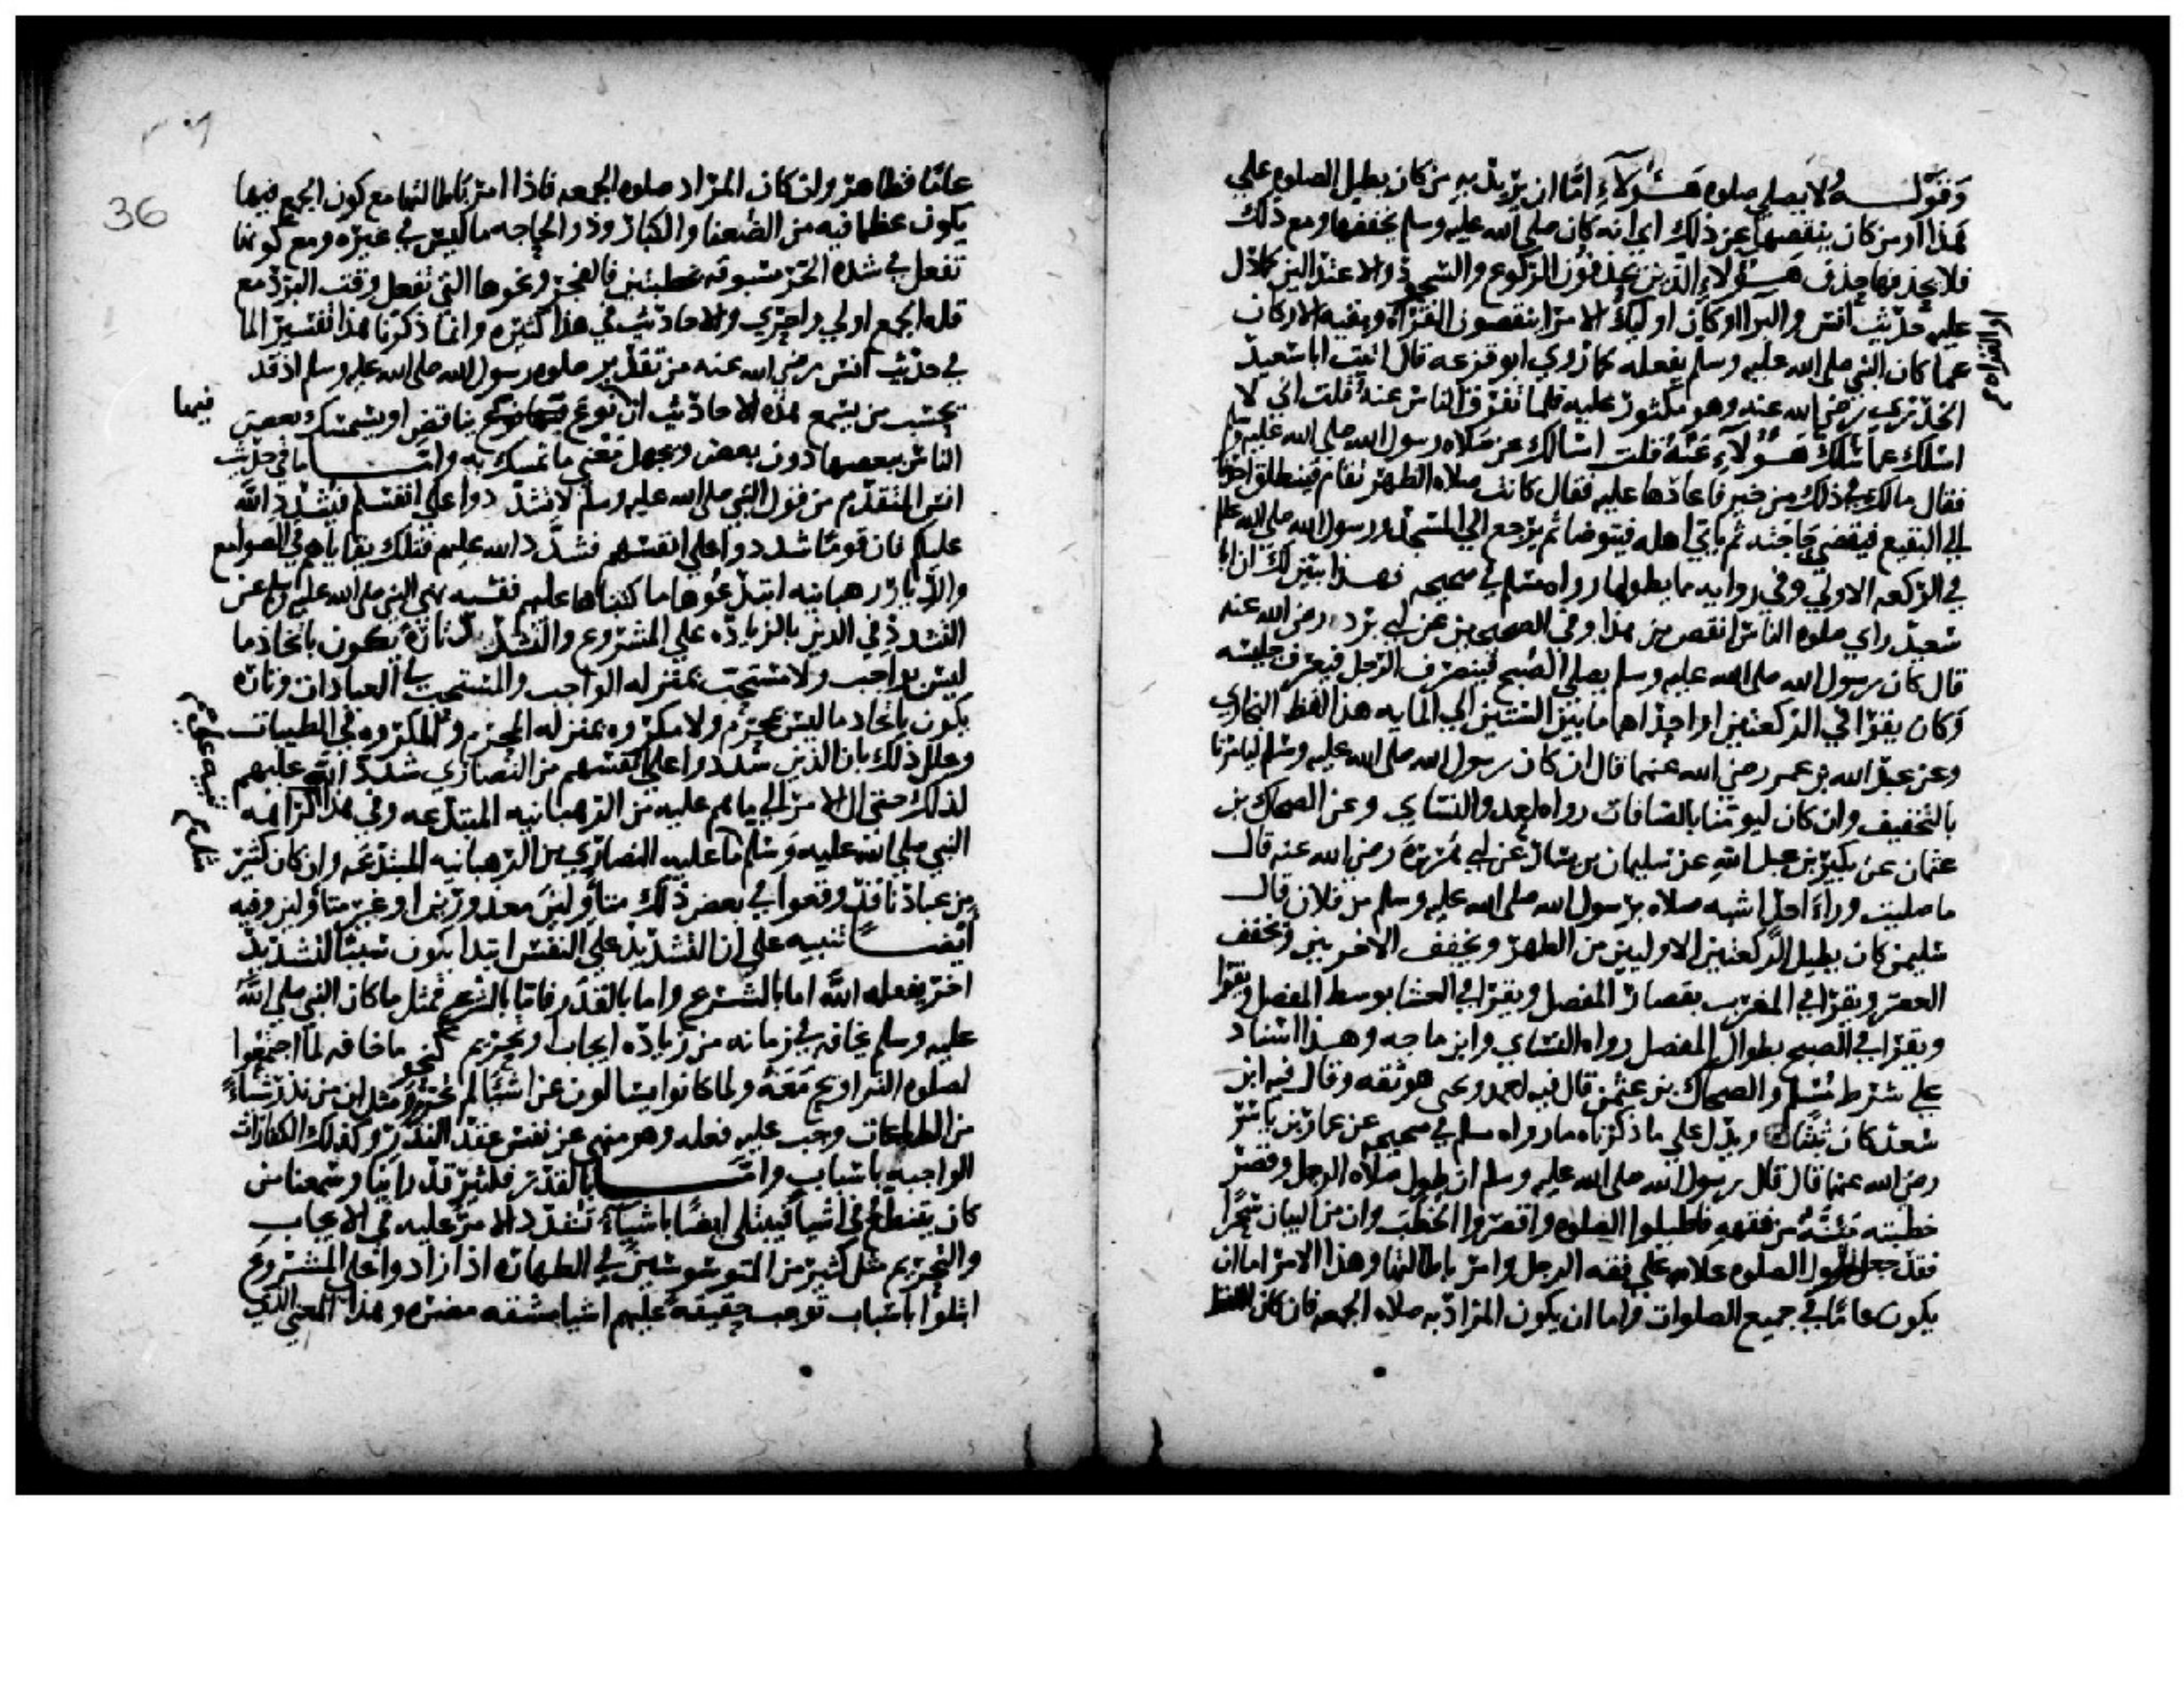 وقوله لا يصلي صلوة هؤلاء اما ان يريد به من كان يطيل الصلوة علي
هذا او من كان ينقصها عن ذلك اي انه كان صلي الله عليه وسلم يخففها ومع ذلك
فلا يحذفها حذف هؤلاء الذين يحذفون الركوع والسجود والاعتدالين كما دل
عليه حديث انس والبرا او كان اوليك الامرا ينقصون القراة وبقيه الاركان
عما كان النبي صلي الله عليه وسلم يفعله كما روي ابو قزعه قال اتيت ابا سعيد
الخدري رضي الله عنه وهو مكثور عليه فلما تفرق الناس عنه قلت اني لا
اسلك عما سلك هؤلاء عنه قلت اسالك عن صلاه رسول الله صلي الله عليه وسلم
فقال مالك في ذلك من خير فاعادها عليه فقال كانت صلاه الظهر تقام فينطلق احدنا
الي البقيع فيقضي حاجته ثم ياتي اهله فيتوضا ثم يرجع الي المسجد ورسول الله صلي الله عليه وسلم
في الركعه الاولي وفي روايه مما يطولها رواه مسلم في صحيحه فهذا يبين لك ان ابا
سعيد راي صلوة الناس انقص من هذا وفي الصحيحين عن ابي برزه رضي الله عنه
قال كان رسول الله صلي الله عليه وسلم يصلي الصبح فينصرف الرجل فيعرف جليسه
وكان يقرا في الركعتين او احداهما ما بين الستين الي المايه هذا لفظ البخاري
وعن عبد الله بن عمر رضي الله عنهما قال ان كان رسول الله صلي الله عليه وسلم ليامرنا
بالتخفيف وان كان ليومنا بالصافات رواه احمد والنساي وعن الضحاك بن
عثمان عن بكير بن عبد الله عن سليمان بن يسار عن ابي هريرة رضي الله عنه قال
ما صليت وراء احد اشبه صلاه برسول الله صلي الله عليه وسلم من فلان قال
سليمن كان يطيل الركعتين الاوليين من الظهر ويخفف الاخريين ويخفف
العصر ويقرا في المغرب بقصار المفصل ويقرا في العشا بوسط المفصل ويقرا
ويقرا في الصبح بطوال المفصل رواه النساي وابن ماجه وهذا اسناد
علي شرط مسلم والضحاك بن عثمن قال فيه احمد ويحيى هو ثقه وقال فيه ابن
سعد كان ثبتا ويدل علي ما ذكرناه ما رواه مسلم في صحيحه عن عمار بن ياسر
رضي الله عنهما قال قال رسول الله صلي الله عليه وسلم ان طول صلاة الرجل وقصر
خطبته مئنة من فقهه فاطيلوا الصلوة واقصروا الخطبه وان من البيان سحرا
فقد جعل طول الصلوة علامه علي فقه الرجل وامر باطالتها وهذا الامر اما ان
يكون عاما في جميع الصلوات واما ان يكون المراد به صلاه الجمعه فان كان اللفظ
36
عاما فظاهر وان كان المراد صلوه الجمعه فاذا امر باطالتها مع كون الجمع فيها
يكون عظيما فيه من الضعفا والكبار وذو الحاجه ما ليس في غيره ومع كونها
تفعل في شدة الحر مسبوقه بخطبتين فالفجر ونحوها التي تفعل وقت البرد مع
قله الجمع اولي واحري والاحاديث في هذا كثيره وانما ذكرنا هذا تفسير الما
في حديث انس رضي الله عنه من تقدير صلوه رسول الله صلي الله عليه وسلم اذ قد
يحسب من يسمع هذه الاحاديث ان نوع تناقض او يتمسك بعض
فيها
الناس ببعضها دون بعض ويجهل معني ما تمسك به واما ما في حديث
انس المتقدم من قول النبي صلي الله عليه وسلم لا تشددوا علي انفسكم فيشدد الله
عليكم فان قوما شددوا علي انفسهم فشدد الله عليهم فتلك بقاياهم في الصوامع
والديار رهبانيه ابتدعوها ما كتبناها عليهم ففيه نهي النبي صلي الله عليه وسلم عن
التشدد في الدين بالزياده علي المشروع والتشديد تارة يكون باتخاذ ما
ليس بواجب ولا مستحب بمنزله الواجب والمستحب في العبادات وتاره
يكون باتخاذ ما ليس بمحرم ولا مكروه بمنزله المحرم والمكروه في الطيبات
وعلل ذلك بان الذين شددوا علي انفسهم من النصاري شدد الله عليهم
لذلك حتي ال الامر الي ما هم عليه من الرهبانيه المبتدعه وفي هذا كراهه
النبي صلي الله عليه وسلم ما عليه النصاري من الرهبانيه المبتدعه وان كان كثير
من عبادنا قد وقعوا في بعض ذلك متاولين معذورين او غير متاولين وفيه
ايضا تنبيه علي ان التشديد علي النفس ابتدا يكون سببا لتشديد
اخر يفعله الله اما بالشرع واما بالقدر فاما بالشرع فمثل ما كان النبي صلي الله
عليه وسلم يخافه في زمانه من زياده ايجاب او تحريم كنحو ما خافه لما اجتمعوا
لصلوه التراويح معه ولما كانوا يسالون عن اشيا لم تحرم ومثل ان من نذر شيا
من الطاعات وجب عليه فعله وهو منهي عن نفس عقد النذر وكذلك الكفارات
الواجبه باسباب واما بالقدر فكثير قد راينا وسمعنا من
كان يتنطع في اشيا فيبتلي ايضا باشياء تشدد الامر عليه في الايجاب
والتحريم مثل كثير من الموسوسين في الطهاره اذا زادوا علي المشروع
ابتلوا باسباب توجب حقيقة عليهم اشيا مشقه مضره وهذا المعني الذي